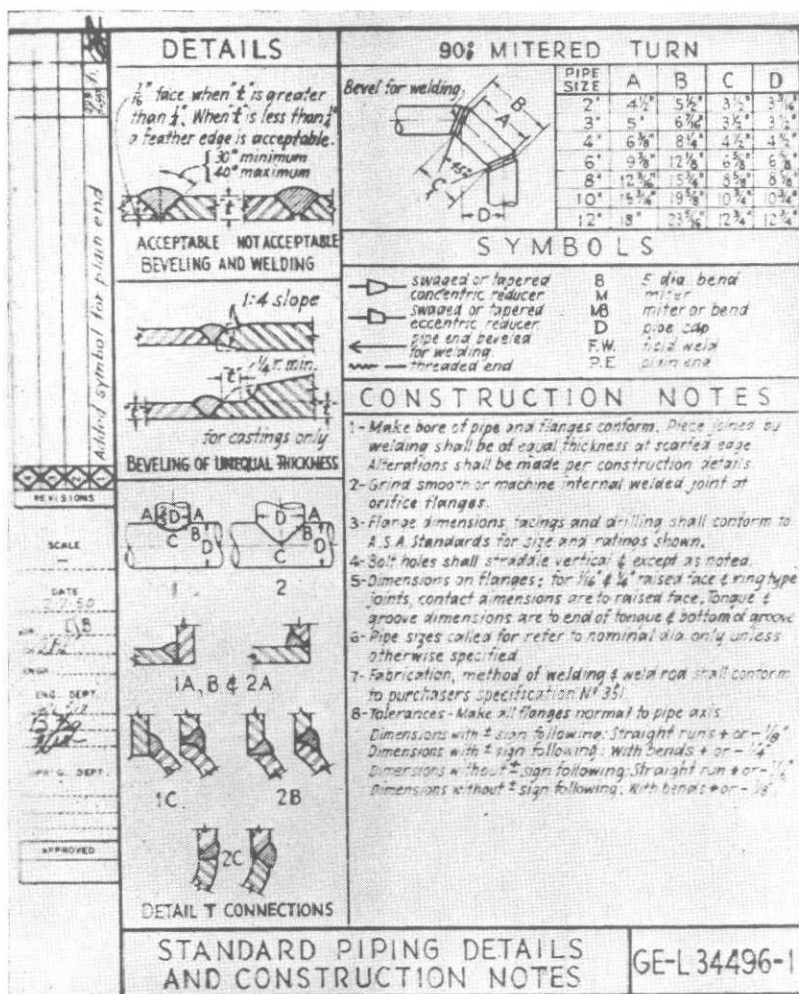 DETAILS
1/16" face when "t" is greater
than 1/4". When "t" is less than 1/4"
a feather edge is acceptable.
30° minimum
40° maximum
"t"
ACCEPTABLE NOT ACCEPTABLE
BEVELING AND WELDING
1:4 slope
"t"
1/4 r. min.
for castings only
BEVELING OF UNEQUAL THICKNESS
A D A
B
C
D
1
D A
B
C
D
2
1A, B & 2A
1C
2B
2C
DETAIL T CONNECTIONS
90° MITERED TURN
Bevel for welding
B
A
45°
C
D
PIPE SIZE A B C D
2" 4 1/2" 5 1/2" 3 1/2"
3" 5" 3 1/2" 3 1/2"
4" 6 3/8" 8 1/4" 4 1/2" 4 1/2"
6" 9 3/8" 12 1/8" 6 5/8" 6 5/8"
8" 15 3/4" 8 5/8" 8 5/8"
10" 19 5/8" 10 3/4" 10 3/4"
12" 18" 12 3/4" 12 3/4"
SYMBOLS
swaged or tapered
concentric reducer
swaged or tapered
eccentric reducer
pipe end beveled
for welding.
threaded end
B 5 dia. bend
M miter
MB miter or bend
D pipe cap
F.W. field weld
P.E plain end
CONSTRUCTION NOTES
1- Make bore of pipe and flanges conform. Piece joined by
welding shall be of equal thickness at scarfed edge
Alterations shall be made per construction details
2- Grind smooth or machine internal welded joint at
orifice flanges.
3- Flange dimensions, facings and drilling shall conform to
A.S.A Standards for size and ratings shown.
4- Bolt holes shall straddle vertical ℄ except as noted.
5- Dimensions on flanges: for 1/16" & 1/4" raised face & ring type
joints, contact dimensions are to raised face. Tongue &
groove dimensions are to end of tongue & bottom of groove
6- Pipe sizes called for refer to nominal dia. only unless
otherwise specified
7- Fabrication, method of welding & weld rod shall conform
to purchasers specification Nº 351
8- Tolerances - Make all flanges normal to pipe axis
Dimensions with ± sign following: Straight runs + or - 1/8"
Dimensions with ± sign following: With bends + or - 1/4"
Dimensions without ± sign following: Straight run + or -
Dimensions without ± sign following: With bends + or -
Added symbol for plain end
REVISIONS
SCALE
DATE
ENGR
ENG. DEPT.
DEPT.
APPROVED
STANDARD PIPING DETAILS
AND CONSTRUCTION NOTES
GE-L 34496-1